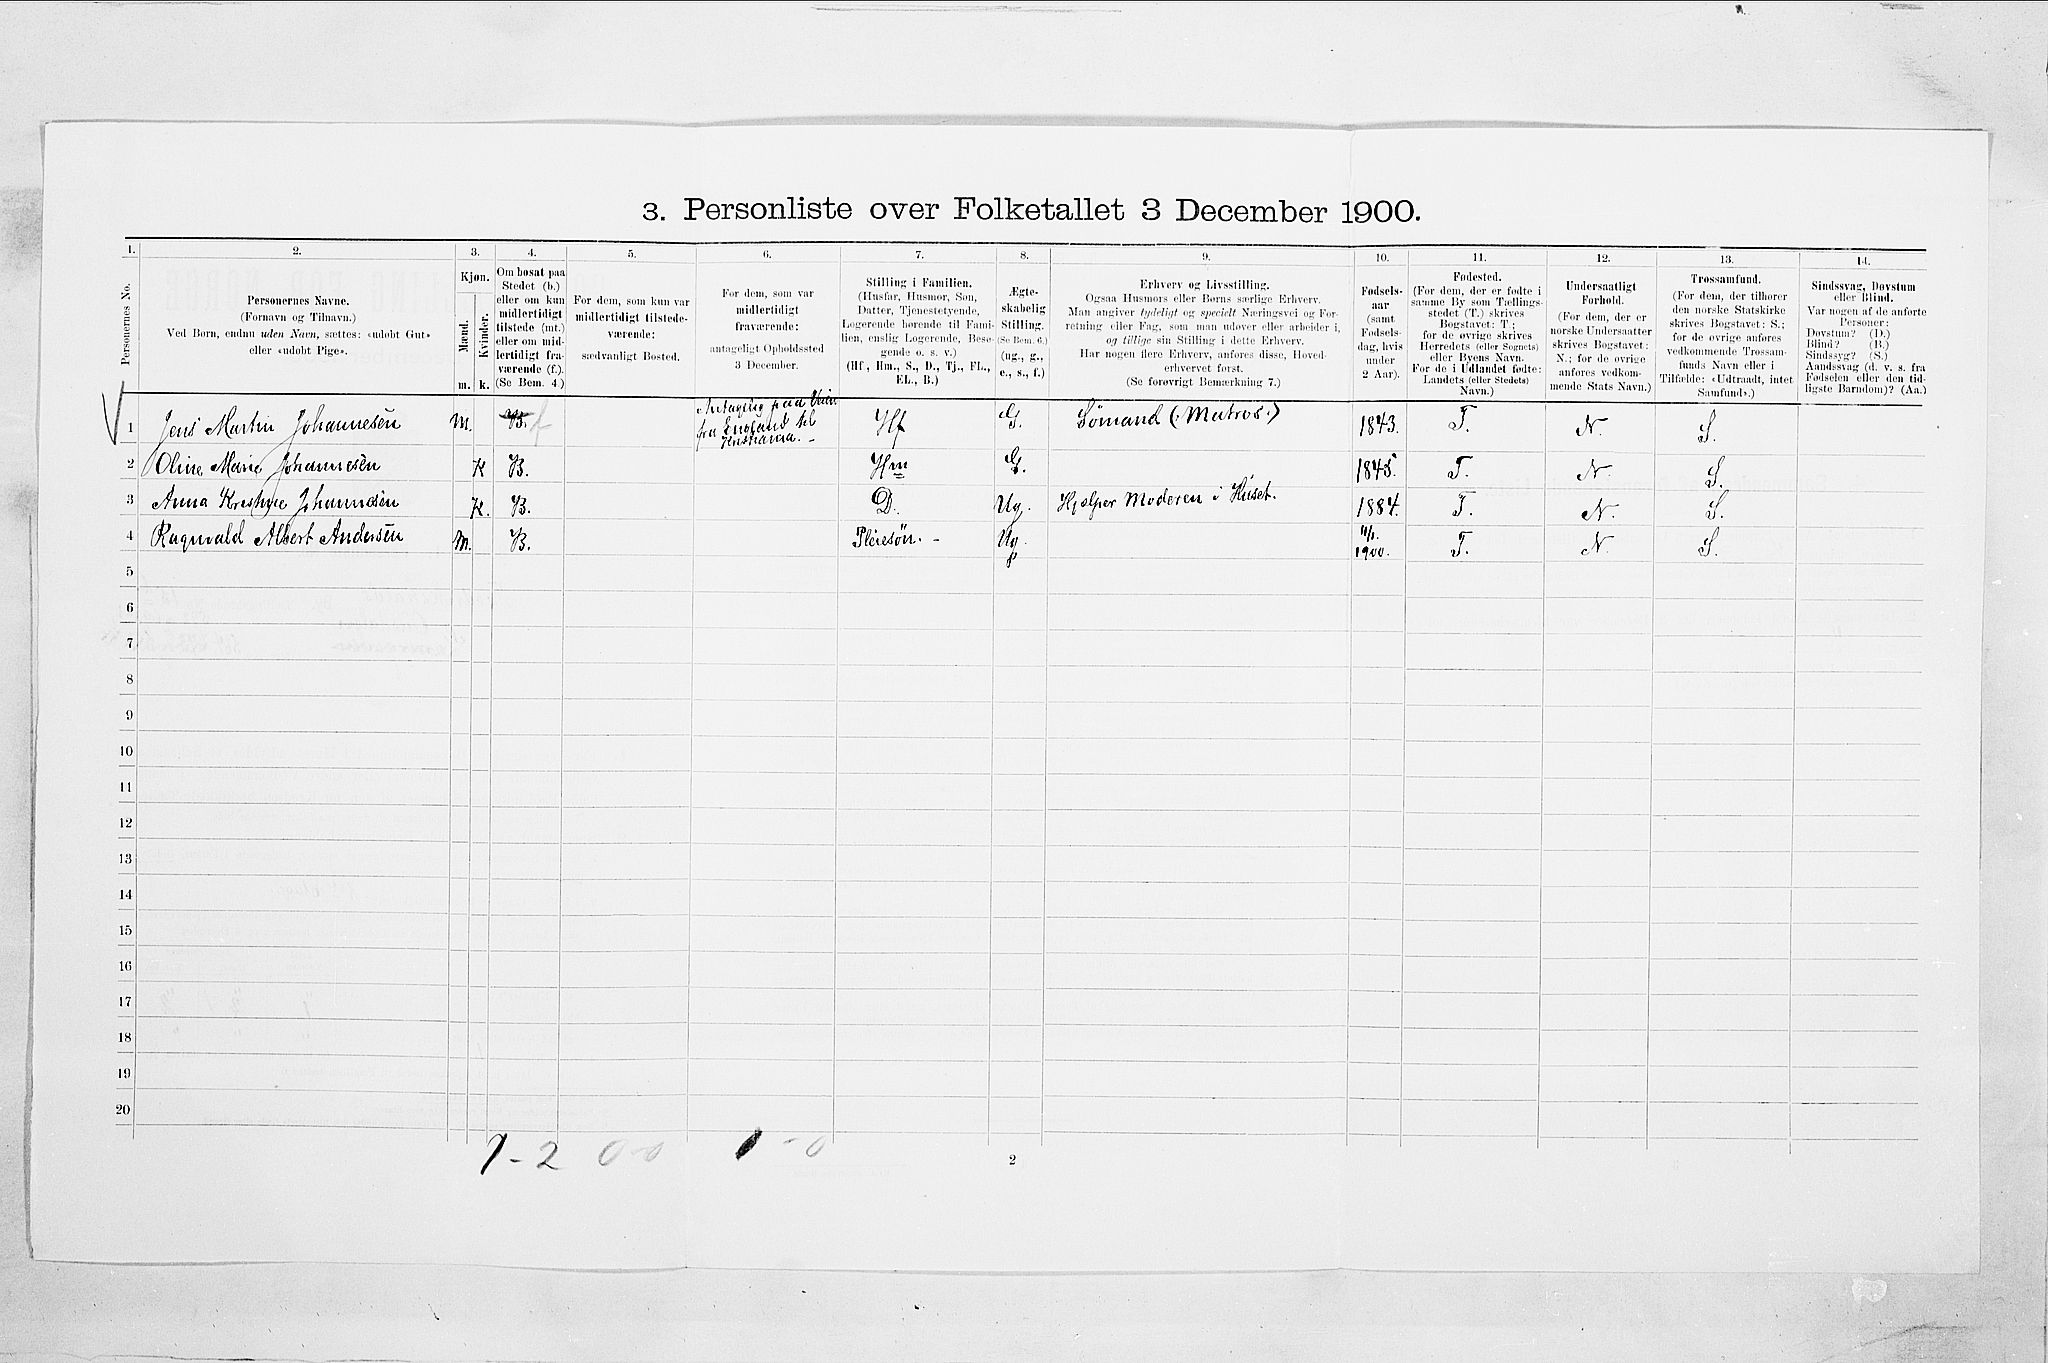 3. Personliste over Folketallet 3 December 1900.
1. 2. 3. 4. 5. 6. 7. 8. 9. 10. 11. 12. 13. 14.
Personernes No.
Personernes Navne.
(Fornavn og Tilnavn.)
Ved Børn, endnu uden Navn, sættes: «udøbt Gut»
eller «udøbt Pige».
Kjøn.
Mænd.
Kvinder.
m. k.
Om bosat paa
Stedet (b.)
eller om kun
midlertidigt
tilstede (mt.)
eller om mid-
lertidigt fra-
værende (f.).
(Se Bem. 4.)
For dem, som kun var
midlertidigt tilstede-
værende:
sædvanligt Bosted.
For dem, som var
midlertidigt
fraværende:
antageligt Opholdssted
3 December.
Stilling i Familien.
(Husfar, Husmor, Søn,
Datter, Tjenestetyende,
Logerende hørende til Fami-
lien, enslig Logerende, Besø-
gende o. s. v.)
(Hf., Hm., S., D., Tj., FL.,
EL., B.)
Ægte-
skabelig
Stilling.
(Se Bem. 6.)
(ug., g.,
e., s., f.)
Erhverv og Livsstilling.
Ogsaa Husmors eller Børns særlige Erhverv.
Man angiver tydeligt og specielt Næringsvei og For-
retning eller Fag, som man udøver eller arbeider i,
og tillige sin Stilling i dette Erhverv.
Har nogen flere Erhverv, anføres disse, Hoved-
erhvervet først.
(Se forøvrigt Bemærkning 7.)
Fødsels-
aar
(samt
Fødsels-
dag, hvis
under
2 Aar).
Fødested.
(For dem, der er fødte i
samme By som Tællings-
stedet (T.) skrives
Bogstavet: T.;
for de øvrige skrives
Herredets (eller Sognets)
eller Byens Navn.
For de i Udlandet fødte:
Landets (eller Stedets)
Navn.)
Undersaatligt
Forhold.
(For dem, der er
norske Undersaatter
skrives Bogstavet:
N.; for de øvrige
anføres vedkom-
mende Stats Navn.)
Trossamfund.
(For dem, der tilhører
den norske Statskirke
skrives Bogstavet: S.;
for de øvrige anføres
vedkommende Trossam-
funds Navn eller i
Tilfælde: «Udtraadt, intet
Samfund».)
Sindssvag, Døvstum
eller Blind.
Var nogen af de anførte
Personer:
Døvstum? (D.)
Blind? (B.)
Sindssyg? (S.)
Aandssvag (d. v. s. fra
Fødselen eller den tid-
ligste Barndom)? (Aa.)
1 Jens Martin Johannesen M. B. f Antaglig paa Veien
fra England til
Kristiania. - Hf G. Sömand (Matros.) 1843. T. N. S.
2 Oline Marie Johannesen K B. Hm G. 1845. T. N. S.
3 Anna Kristine Johannesen K. B. D. Ug. Hjælper Moderen i Huset. 1884. T. N. S.
4 Ragnvald Albert Andersen M. B. Pleiesøn. - Ug. 1900. T. N. S.
5
6
7
8
9
10
11
12
13
14
15
16
17
18
19
20
1-2 0-0 1-0
2